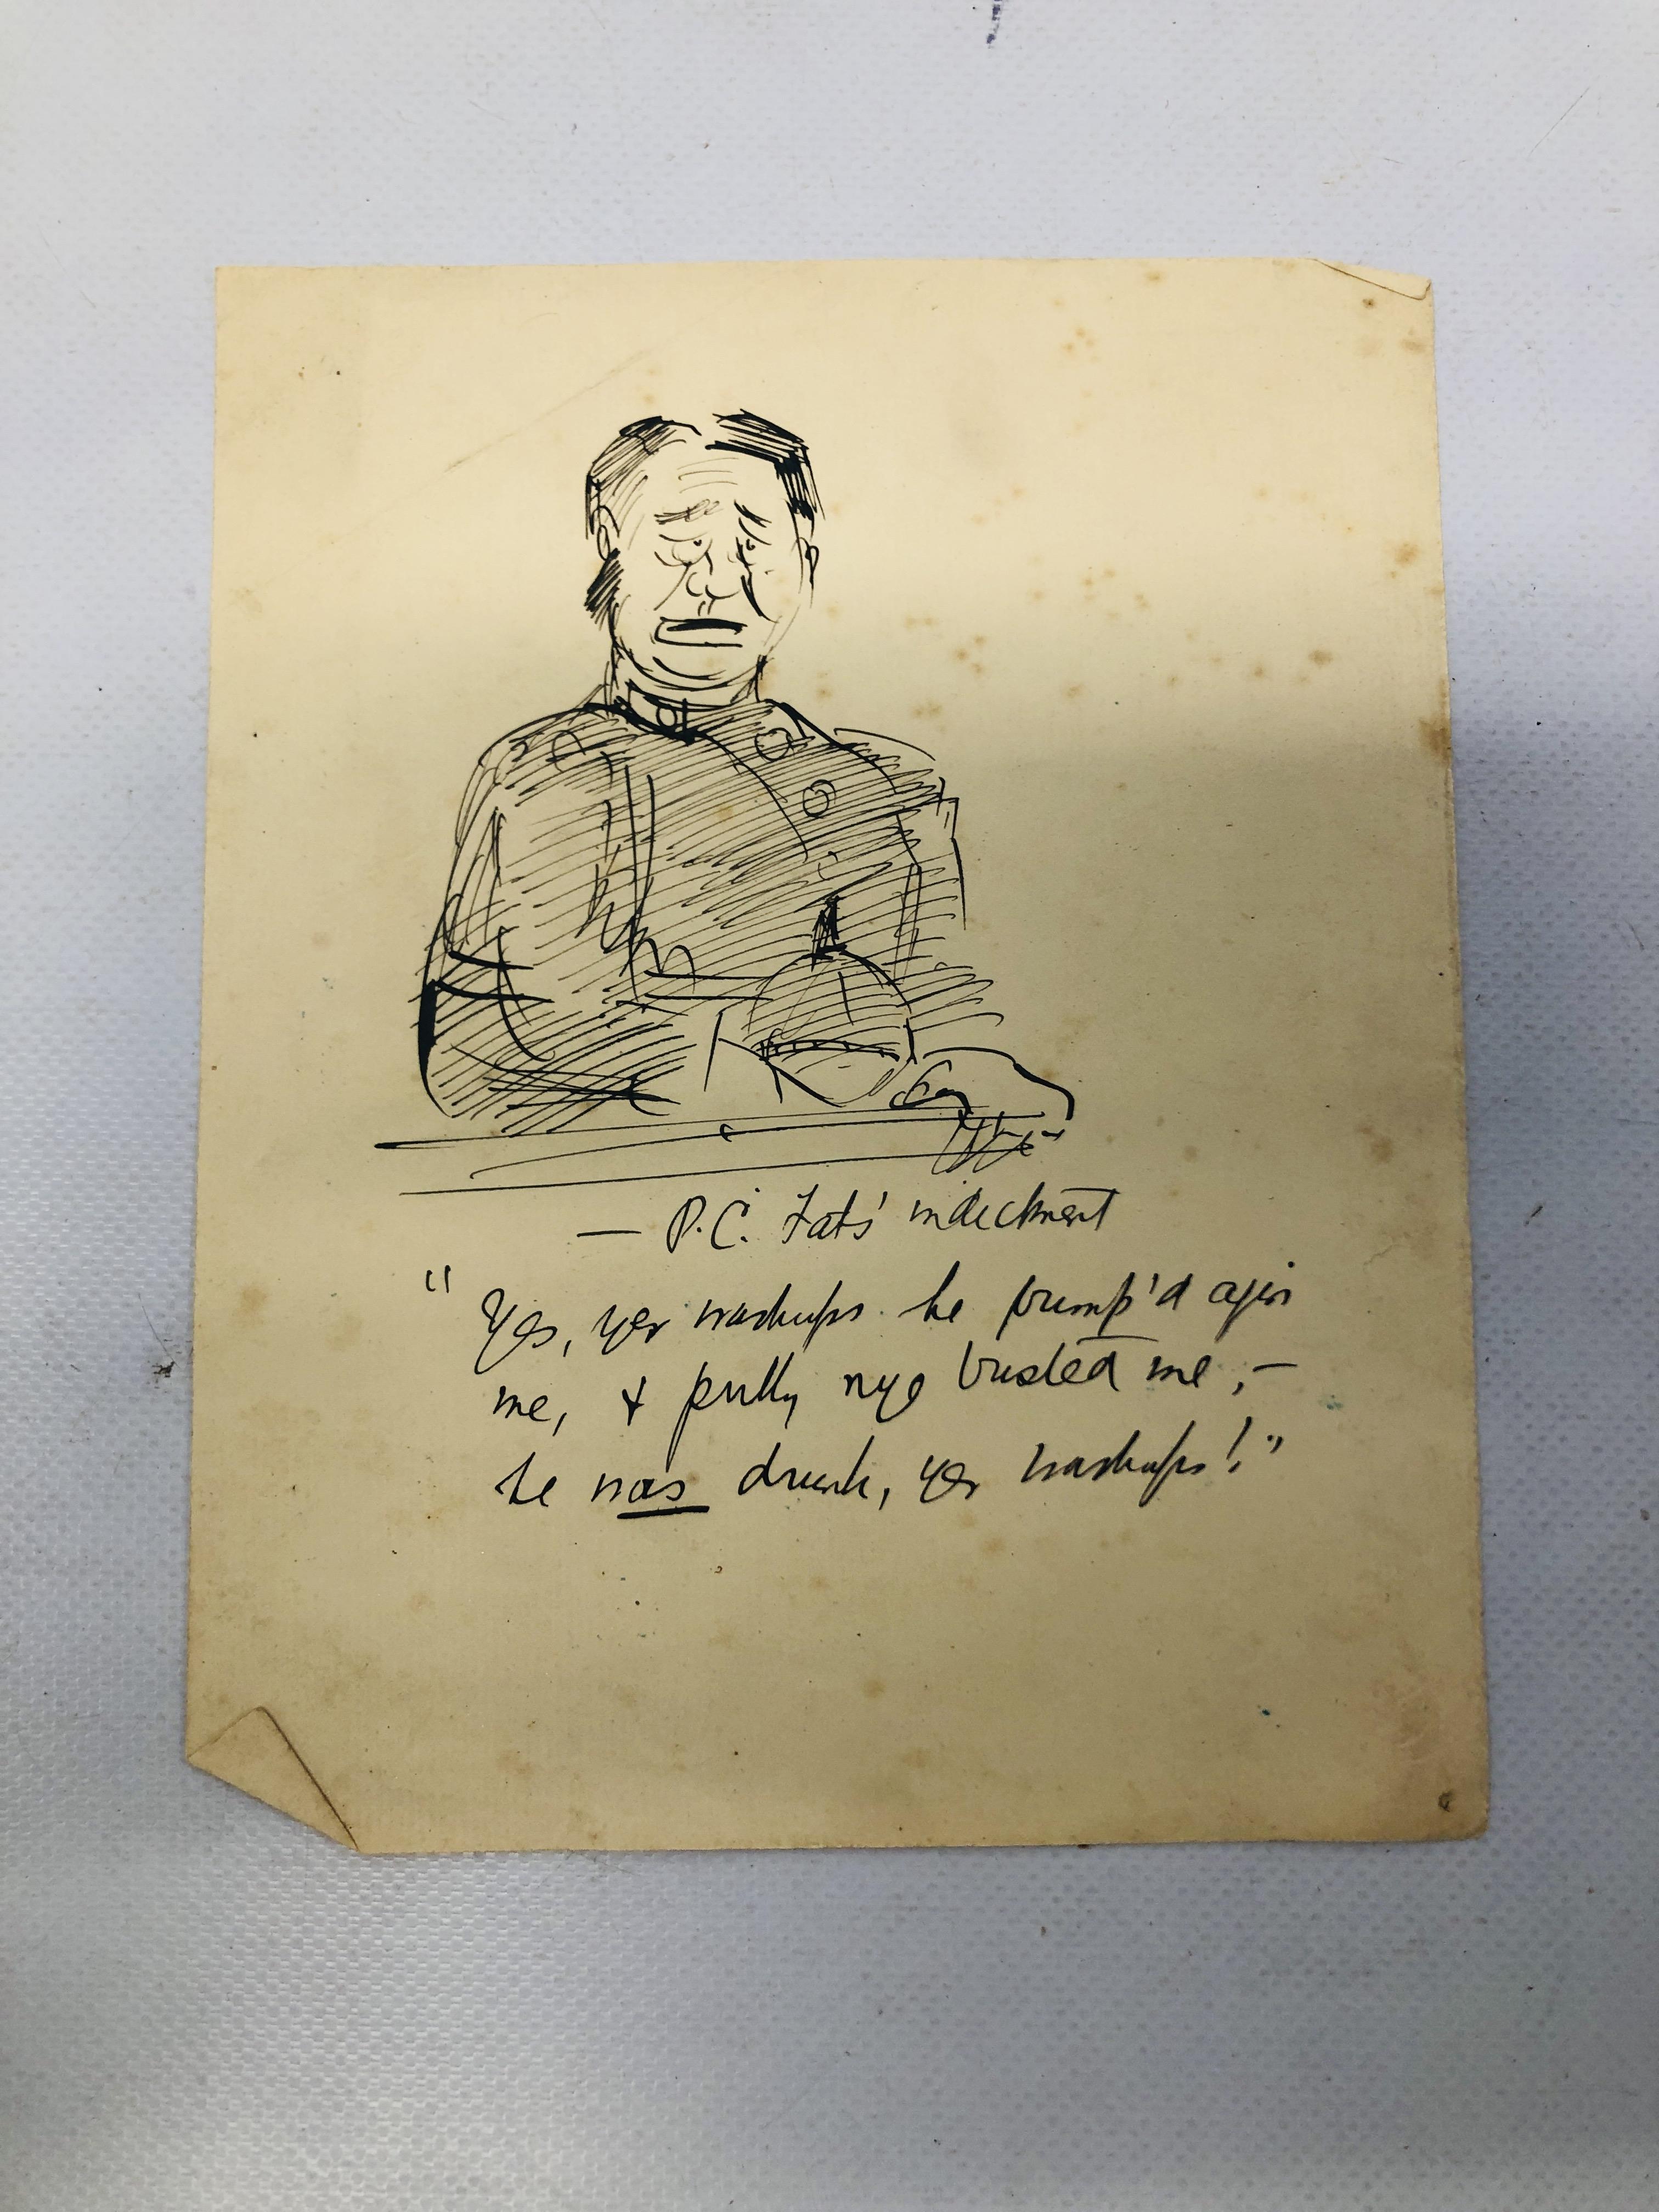 — P.C. Fats' indictment
"Yes, yer washups he bump'd agin
me, & putty nye busted me, —
he was drunk, yer washups!"